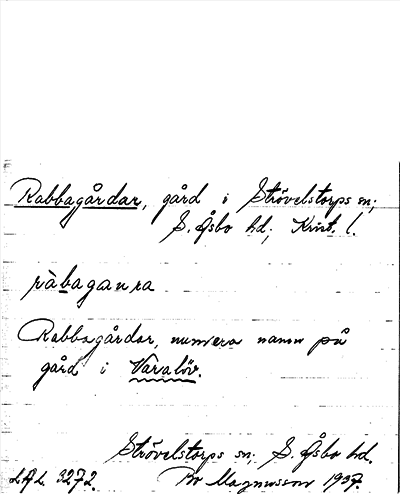 Rabbagårdar, gård i Strövelstorps sn;
S. Åsbo hd; Krist. l.
ràbaganra
Rabbagårdar, numera namn på
gård i Varalöv.
Strövelstorps sn; S. Åsbo hd.
LAL 3272. Br Magnusson 1937.